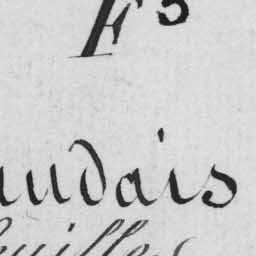 F 5
udais
uilles